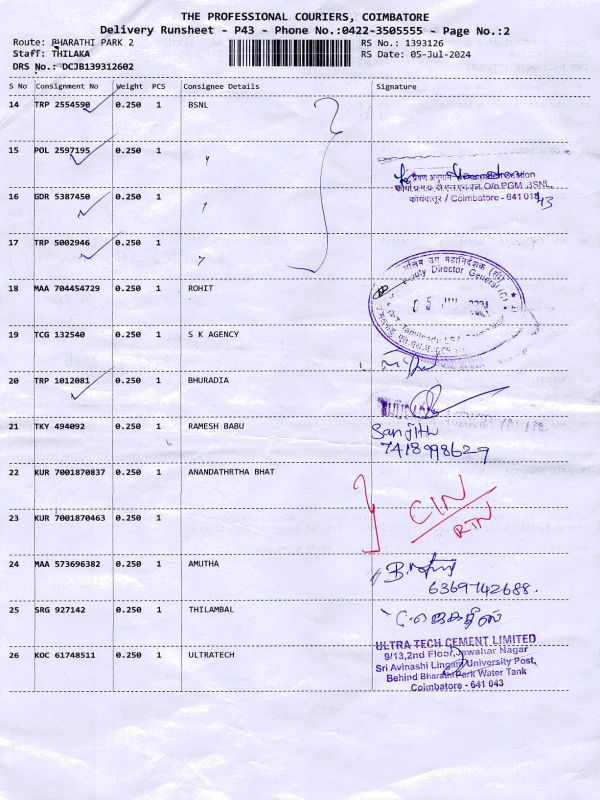 THE PROFESSIONAL COURIERS, COIMBATORE
Delivery Runsheet - P43 - Phone No.:0422-3505555 - Page No.:2
Route: BHARATHI PARK 2 RS No.: 1393126
Staff: THILAKA RS Date: 05-Jul-2024
DRS No.: DCJB139312602
S No Consignment No Weight PCS Consignee Details Signature
14 TRP 2554590 0.250 1 BSNL
15 POL 2597195 0.250 1 "
16 GDR 5387450 0.250 1 "
कोयंबत्तूर / Coimbatore - 641 043
17 TRP 5002946 0.250 1 "
18 MAA 704454729 0.250 1 ROHIT
Deputy Director General
19 TCG 132540 0.250 1 S K AGENCY
20 TRP 1012081 0.250 1 BHURADIA
21 TKY 494092 0.250 1 RAMESH BABU Sanjith
7418998629
22 KUR 7001870837 0.250 1 ANANDATHRTHA BHAT CIN
RTN
23 KUR 7001870463 0.250 1
24 MAA 573696382 0.250 1 AMUTHA
6369742688.
25 SRG 927142 0.250 1 THILAMBAL
26 KOC 61748511 0.250 1 ULTRATECH
ULTRA TECH CEMENT LIMITED
9/13,2nd Floor,Jawahar Nagar
Sri Avinashi Lingam University Post,
Behind Bharathi Park Water Tank
Coimbatore - 641 043